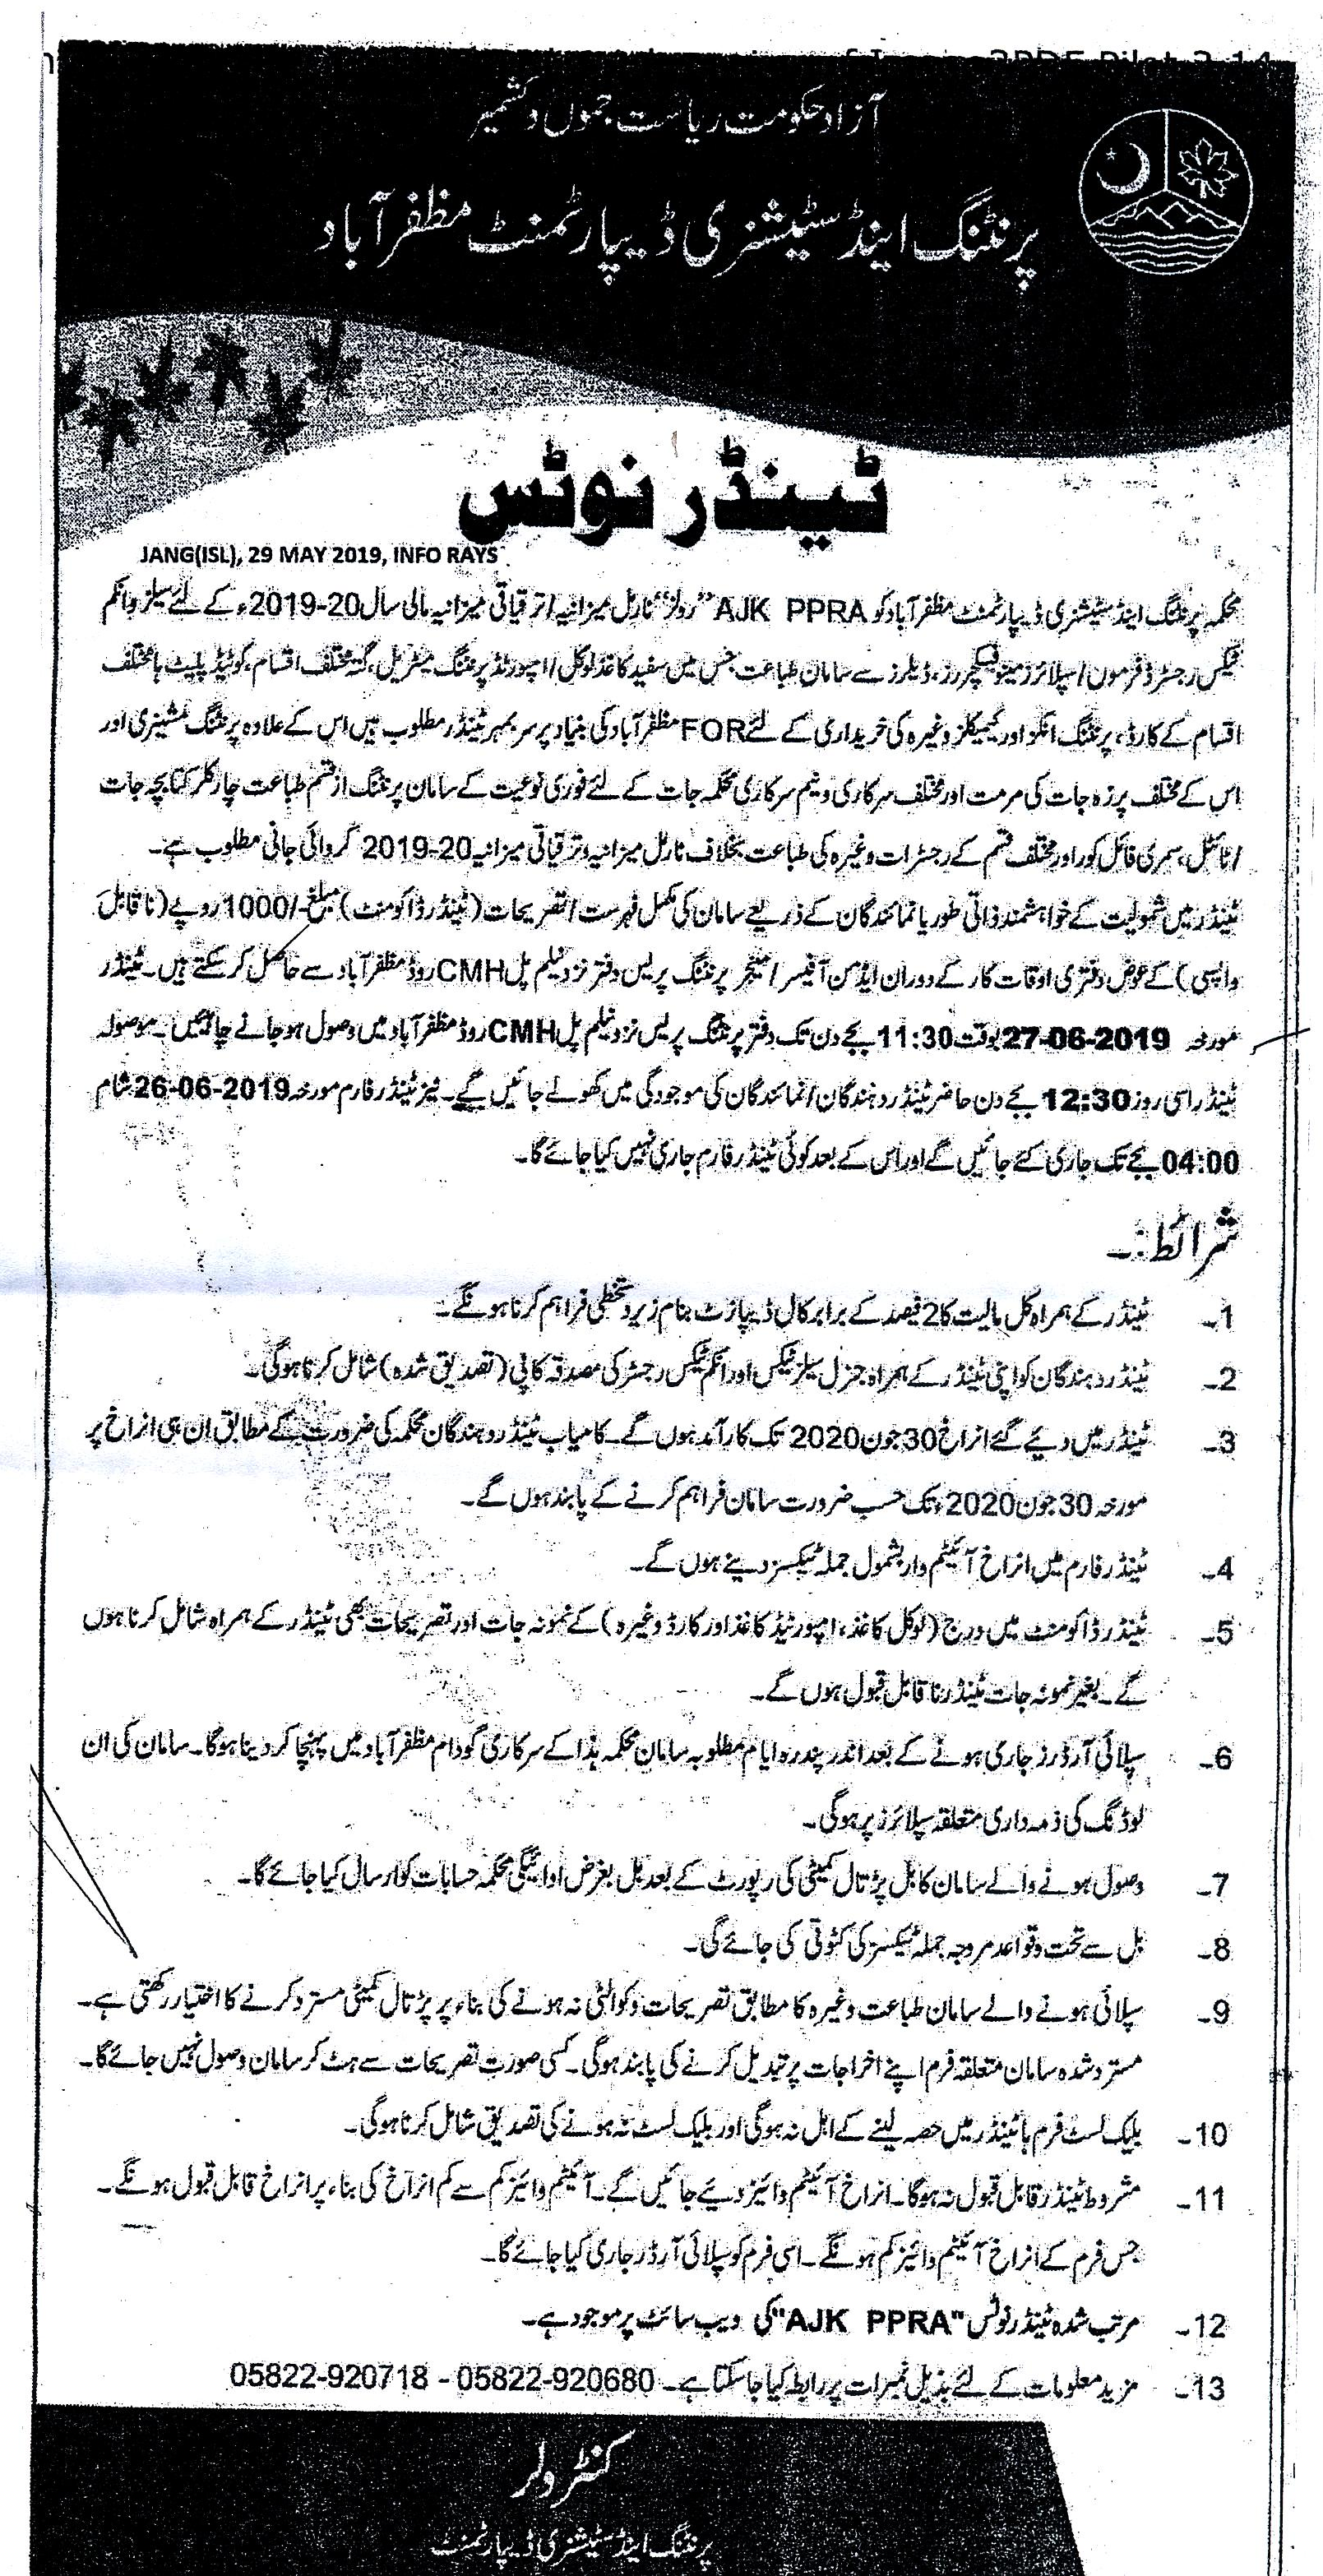 آزاد حکومت ریاست جموں و کشمیر
پرنٹنگ اینڈ سٹیشنری ڈیپارٹمنٹ مظفرآباد
ٹینڈر نوٹس
JANG(ISL), 29 MAY 2019, INFO RAYS
محکمہ پرنٹنگ اینڈ سٹیشنری ڈیپارٹمنٹ مظفرآباد کو AJK PPRA "رولز" نارمل میزانیہ/ترقیاتی میزانیہ مالی سال 20-2019ء کے لئے سیلز و انکم
ٹیکس رجسٹرڈ فرموں/سپلائرز مینوفیکچررز، ڈیلرز سے سامان طباعت جس میں سفید کاغذ لوکل/امپورٹڈ پرنٹنگ میٹریل، گتہ مختلف اقسام، کوٹیڈ پلیٹ ہا مختلف
اقسام کے کارڈ، پرنٹنگ انکز اور کیمیکلز وغیرہ کی خریداری کے لئے FOR مظفرآباد کی بنیاد پر سربمہر ٹینڈر مطلوب ہیں اس کے علاوہ پرنٹنگ مشینری اور
اس کے مختلف پرزہ جات کی مرمت اور مختلف سرکاری و نیم سرکاری محکمہ جات کے لئے فوری نوعیت کے سامان پرنٹنگ از قسم طباعت چار کلر کتابچہ جات
/ٹائٹل، سمری فائل کور اور مختلف قسم کے رجسٹرات وغیرہ کی طباعت بخلاف نارمل میزانیہ و ترقیاتی میزانیہ 20-2019 کروائی جانی مطلوب ہے۔
ٹینڈر میں شمولیت کے خواہشمند ذاتی طور یا نمائندگان کے ذریعے سامان کی مکمل فہرست/تصریحات (ٹینڈر ڈاکومنٹ) مبلغ -/1000 روپے (ناقابل
واپسی) کے عوض دفتری اوقات کار کے دوران ایڈمن آفیسر/منیجر پرنٹنگ پریس دفتر نزد نیلم پل CMH روڈ مظفرآباد سے حاصل کر سکتے ہیں۔ ٹینڈر
مورخہ 27-06-2019 بوقت 11:30 بجے دن تک دفتر پرنٹنگ پریس نزد نیلم پل CMH روڈ مظفرآباد میں وصول ہو جانے چاہئیں۔ موصولہ
ٹینڈر اسی روز 12:30 بجے دن حاضر ٹینڈر دہندگان/نمائندگان کی موجودگی میں کھولے جائیں گے۔ نیز ٹینڈر فارم مورخہ 26-06-2019 شام
04:00 بجے تک جاری کئے جائیں گے اور اس کے بعد کوئی ٹینڈر فارم جاری نہیں کیا جائے گا۔
شرائط:۔
1۔ ٹینڈر کے ہمراہ کل مالیت کا 2 فیصد کے برابر کال ڈیپازٹ بنام زیر دستخطی فراہم کرنا ہونگے۔
2۔ ٹینڈر دہندگان کو اپنی ٹینڈر کے ہمراہ جنرل سیلز ٹیکس اور انکم ٹیکس رجسٹر کی مصدقہ کاپی (تصدیق شدہ) شامل کرنا ہوگی۔
3۔ ٹینڈر میں دیئے گئے انراخ 30 جون 2020 تک کارآمد ہوں گے۔ کامیاب ٹینڈر دہندگان محکمہ کی ضرورت کے مطابق ان ہی انراخ پر
مورخہ 30 جون 2020ء تک حسب ضرورت سامان فراہم کرنے کے پابند ہوں گے۔
4۔ ٹینڈر فارم میں انراخ آئیٹم وار بشمول جملہ ٹیکسز دینے ہوں گے۔
5۔ ٹینڈر ڈاکومنٹ میں درج (لوکل کاغذ، امپورٹیڈ کاغذ اور کارڈ وغیرہ) کے نمونہ جات اور تصریحات بھی ٹینڈر کے ہمراہ شامل کرنا ہوں
گے۔ بغیر نمونہ جات ٹینڈر ناقابل قبول ہوں گے۔
6۔ سپلائی آرڈرز جاری ہونے کے بعد اندر پندرہ ایام مطلوبہ سامان محکمہ ہذا کے سرکاری گودام مظفرآباد میں پہنچا کر دینا ہوگا۔ سامان کی ان
لوڈنگ کی ذمہ داری متعلقہ سپلائرز پر ہوگی۔
7۔ وصول ہونے والے سامان کا بل پڑتال کمیٹی کی رپورٹ کے بعد بل بغرض ادائیگی محکمہ حسابات کو ارسال کیا جائے گا۔
8۔ بل سے تحت قواعد مروجہ جملہ ٹیکسز کی کٹوتی کی جائے گی۔
9۔ سپلائی ہونے والے سامان طباعت وغیرہ کا مطابق تصریحات و کوالٹی نہ ہونے کی بناء پر پڑتال کمیٹی مسترد کرنے کا اختیار رکھتی ہے۔
مسترد شدہ سامان متعلقہ فرم اپنے اخراجات پر تبدیل کرنے کی پابند ہوگی۔ کسی صورت تصریحات سے ہٹ کر سامان وصول نہیں جائے گا۔
10۔ بلیک لسٹ فرم ہا ٹینڈر میں حصہ لینے کے اہل نہ ہوگی اور بلیک لسٹ نہ ہونے کی تصدیق شامل کرنا ہوگی۔
11۔ مشروط ٹینڈر قابل قبول نہ ہوگا۔ انراخ آئیٹم وائیز دیئے جائیں گے۔ آئیٹم وائیز کم سے کم انراخ کی بناء پر انراخ قابل قبول ہونگے۔
جس فرم کے انراخ آئیٹم وائیز کم ہونگے۔ اسی فرم کو سپلائی آرڈر جاری کیا جائے گا۔
12۔ مرتب شدہ ٹینڈر نوٹس "AJK PPRA" کی ویب سائٹ پر موجود ہے۔
13۔ مزید معلومات کے لئے بذیل نمبرات پر رابطہ کیا جا سکتا ہے۔ 05822-920680 - 05822-920718
کنٹرولر
پرنٹنگ اینڈ سٹیشنری ڈیپارٹمنٹ